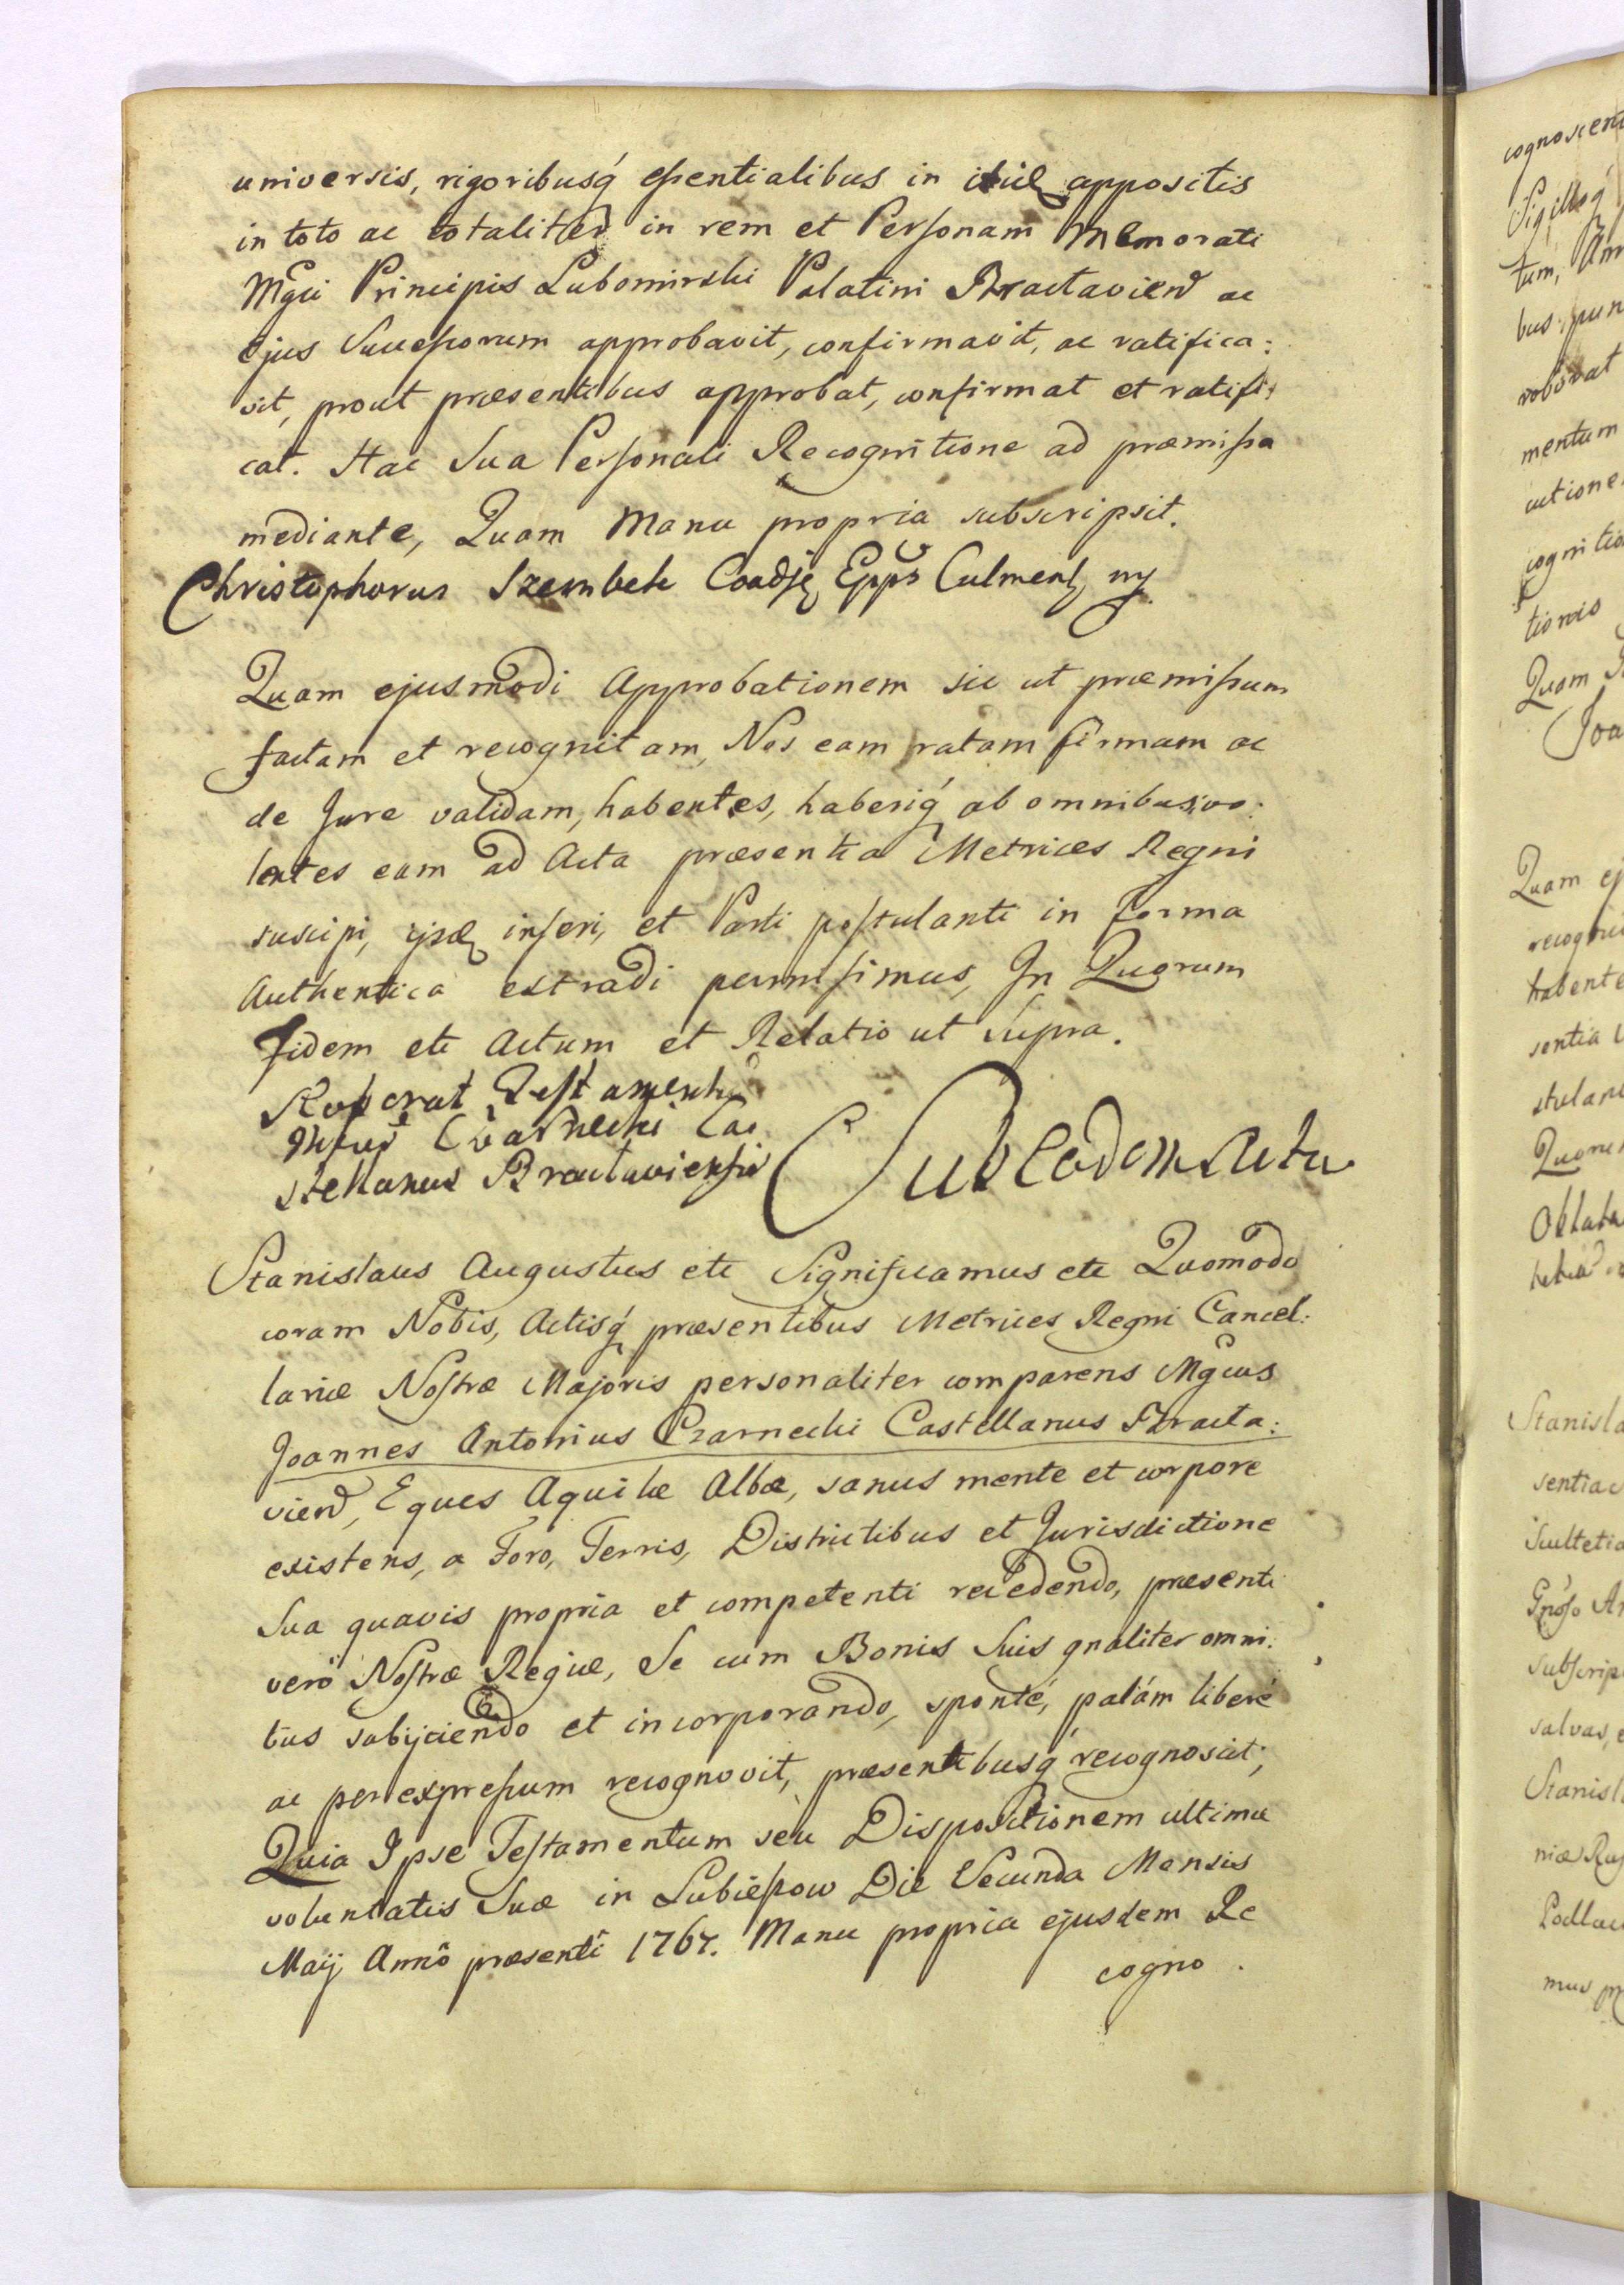 universis, rigoribusq́ essentialibus in appositis
in toto ac totaliter in rem et Personam Memorati
Mgci Principis Lubomirski Palatini Bractavien ac
Ejus Successorum approbavit, confirmavit, ac ratifica:
vit, prout præsentibus approbat, confirmat et ratifi:
cat. Hac Sua Personali Recognitione ad præmissa
mediante, Quam Manu propria subscripsit.
Christophorus Szembek Coadj Epps Culmens mp
Quam ejusmodi Approbationem sic ut præmissum
factam et recognitam, Nos eam ratam firmam ac
de Jure validam, habentes, haberiq́ ab omnibus vo:
lentes eam ad Acta præsentia Metrices Regni
suscipi, ijsq inseri, et Parti postulanti in Forma
Authentica extradi permisimus, In Quorum
fidem etc Actum et Relatio ut supra.
Roborat Testamentu
Mfus Czarnecki Cas
stellanus Bractaviensis
Sub Eodem Actu
Stanislaus Augustus etc Significamus etc Quomodo
coram Nobis, Actisq́ præsentibus Metrices Regni Cancel:
lariæ Nostræ Majoris personaliter comparens Mgcus
Joannes Antonius Czarnecki Castellanus Bracta:
vien, Eques Aquilæ Albæ, sanus mente et corpore
existens, a Foro, Terris, Districtibus et Jurisdictione
Sua quavis propria et competenti recedendo, præsenti
verò Nostræ Regiæ, Se cum Bonis Suis gnaliter omni:
bus subijciendo et incorporando, sponté, palám liberé
ac per expressum recognovit, præsentibusq́ recognoscit;
Quia Ipse Testamentum seu Dispositionem ultimæ
voluntatis Suæ in Lubieszow Die Secunda Mensis
Maij Annô præsenti 1767. Manu propria ejusdem Re
cogno.
cognoscen
Sigilloq́
tum,
bus pun
roborat
mentum
cutione
cognitio
tionis
Quam
Joa
Quam ej
recogni
habente
sentia
stulan
Quoru
Oblata
Stanisla
sentia
Scultetia
Subscrip
salvas, e
Stanisl
niæ
Podlac
mus